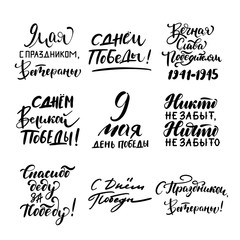 9 мая
с праздником,
Ветераны
С ДНЁМ
ПОБЕДЫ!
Вечная
Слава
Победителям
1941-1945
С ДНЁМ
Великой
ПОБЕДЫ!
9
мая
ДЕНЬ ПОБЕДЫ
Никто
НЕ ЗАБЫТ,
Ничто
НЕ ЗАБЫТО
Спасибо
деду
ЗА
Победу!
С Днём
Победы
С Праздником,
Ветераны!